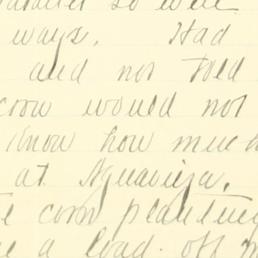 so well
ways. Had
and not told
crow would not
know how much
at Aguavieja.
corn planting
a load off